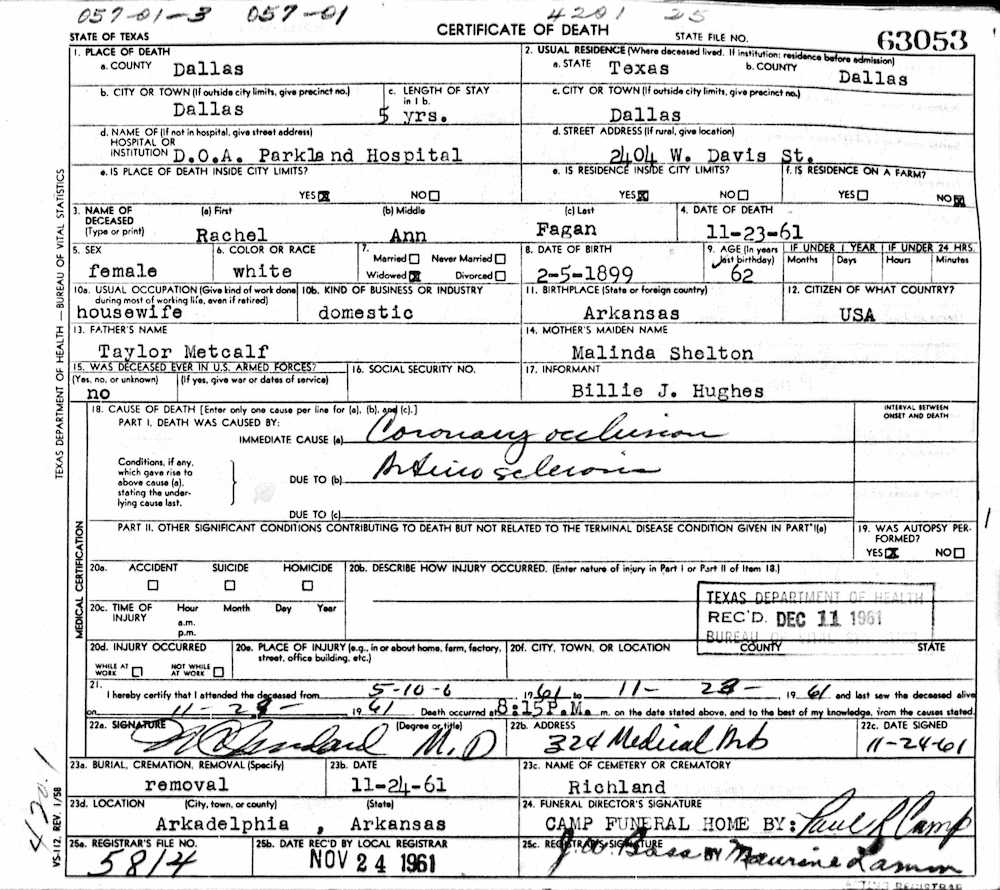 057-01-3 057-01 4201 25
STATE OF TEXAS CERTIFICATE OF DEATH STATE FILE NO. 63053
1. PLACE OF DEATH
a. COUNTY Dallas
2. USUAL RESIDENCE (Where deceased lived. If institution: residence before admission)
a. STATE Texas b. COUNTY Dallas
b. CITY OR TOWN (If outside city limits, give precinct no.) Dallas
c. LENGTH OF STAY in 1 b. 5 yrs.
c. CITY OR TOWN (If outside city limits, give precinct no.)
Dallas
d. NAME OF (If not in hospital, give street address)
HOSPITAL OR
INSTITUTION D.O.A. Parkland Hospital
d. STREET ADDRESS (If rural, give location)
2404 W. Davis St.
e. IS PLACE OF DEATH INSIDE CITY LIMITS?
YES☒ NO☐
e. IS RESIDENCE INSIDE CITY LIMITS?
YES☒ NO☐
f. IS RESIDENCE ON A FARM?
YES☐ NO☒
3. NAME OF DECEASED (Type or print)
(a) First (b) Middle (c) Last
Rachel Ann Fagan
4. DATE OF DEATH
11-23-61
5. SEX
female
6. COLOR OR RACE
white
7.
Married☐ Never Married☐
Widowed☒ Divorced☐
8. DATE OF BIRTH
2-5-1899
9. AGE (In years last birthday)
62
IF UNDER 1 YEAR IF UNDER 24 HRS.
Months Days Hours Minutes
10a. USUAL OCCUPATION (Give kind of work done during most of working life, even if retired)
housewife
10b. KIND OF BUSINESS OR INDUSTRY
domestic
11. BIRTHPLACE (State or foreign country)
Arkansas
12. CITIZEN OF WHAT COUNTRY?
USA
13. FATHER'S NAME
Taylor Metcalf
14. MOTHER'S MAIDEN NAME
Malinda Shelton
15. WAS DECEASED EVER IN U.S. ARMED FORCES?
(Yes, no, or unknown) (If yes, give war or dates of service)
no
16. SOCIAL SECURITY NO.
17. INFORMANT
Billie J. Hughes
18. CAUSE OF DEATH [Enter only one cause per line for (a), (b), and (c).]
INTERVAL BETWEEN ONSET AND DEATH
PART I. DEATH WAS CAUSED BY:
IMMEDIATE CAUSE (a) Coronary occlusion
Conditions, if any, which gave rise to above cause (a), stating the underlying cause last.
DUE TO (b) Arteriosclerosis
DUE TO (c)
PART II. OTHER SIGNIFICANT CONDITIONS CONTRIBUTING TO DEATH BUT NOT RELATED TO THE TERMINAL DISEASE CONDITION GIVEN IN PART I(a)
19. WAS AUTOPSY PERFORMED?
YES☒ NO☐
20a. ACCIDENT SUICIDE HOMICIDE
☐ ☐ ☐
20b. DESCRIBE HOW INJURY OCCURRED. (Enter nature of injury in Part I or Part II of Item 18.)
20c. TIME OF INJURY
Hour Month Day Year
a.m.
p.m.
TEXAS DEPARTMENT OF HEALTH
REC'D. DEC 11 1961
BUREAU OF VITAL STATISTICS
20d. INJURY OCCURRED
WHILE AT WORK ☐ NOT WHILE AT WORK ☐
20e. PLACE OF INJURY (e.g., in or about home, farm, factory, street, office building, etc.)
20f. CITY, TOWN, OR LOCATION COUNTY STATE
21.
I hereby certify that I attended the deceased from 5-10-6 1961 to 11- 23- 1961 and last saw the deceased alive
on 11-23- 1961 Death occurred at 8:15P.M. m. on the date stated above, and to the best of my knowledge, from the causes stated.
22a. SIGNATURE (Degree or title)
M.D
22b. ADDRESS
324 Medical Arts
22c. DATE SIGNED
11-24-61
23a. BURIAL, CREMATION, REMOVAL (Specify)
removal
23b. DATE
11-24-61
23c. NAME OF CEMETERY OR CREMATORY
Richland
23d. LOCATION (City, town, or county) (State)
Arkadelphia , Arkansas
24. FUNERAL DIRECTOR'S SIGNATURE
CAMP FUNERAL HOME BY: Paul R Camp
25a. REGISTRAR'S FILE NO.
5814
25b. DATE REC'D BY LOCAL REGISTRAR
NOV 24 1961
25c. REGISTRAR'S SIGNATURE
J.W. Bass BY Maurine Lamm
TEXAS DEPARTMENT OF HEALTH — BUREAU OF VITAL STATISTICS
MEDICAL CERTIFICATION
VS-112, REV. 1/58
420.1